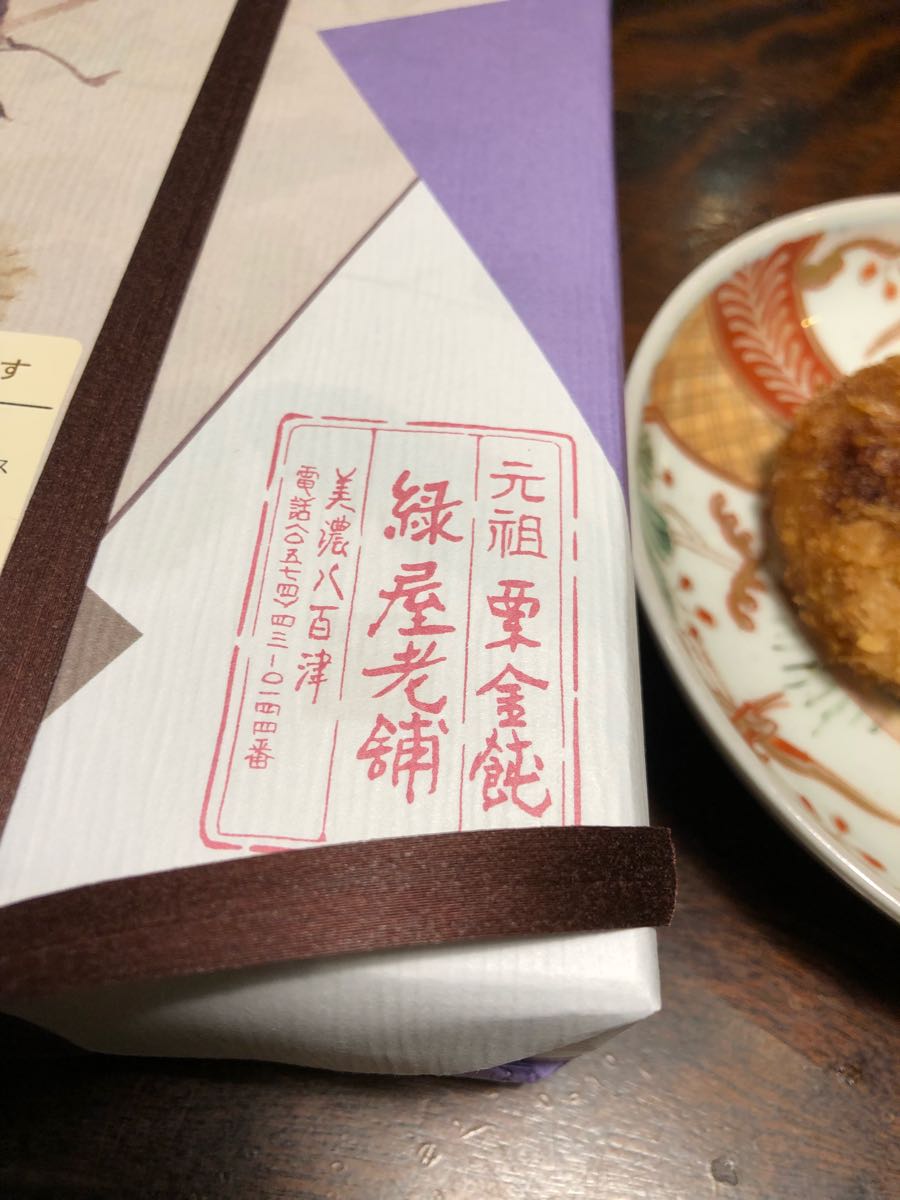 元祖 栗金飩
緑屋老舗
美濃八百津
電話(〇五七四)四三-〇一四四番
す
ス